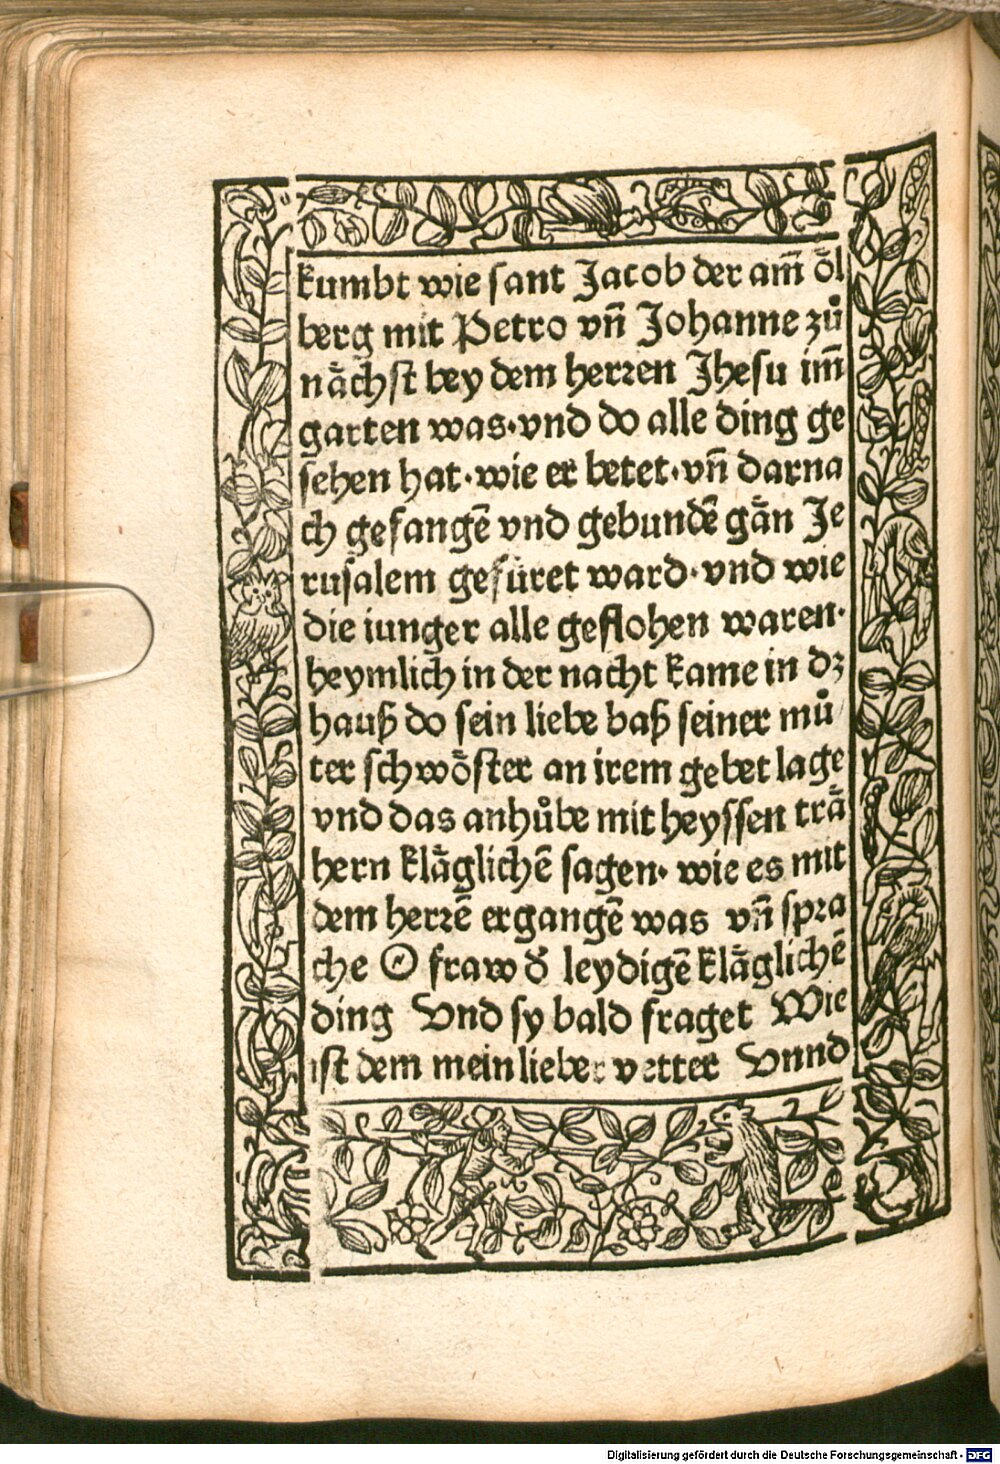 kumbt wie sant Jacob der am̄ oͤl
berg mit Petro vn̄ Johanne zuͦ
naͤchst bey dem herꝛen Jhesu im̄
garten was·vnd do alle ding ge
sehen hat·wie er betet·vn̄ darna
ch gefangē vnd gebundē gaͤn Je
rusalem gefuͤret ward·vnd wie
die iunger alle geflohen waren·
heymlich in der nacht kame in dz
hauß do sein liebe baß seiner muͦ
ter schwoͤster an irem gebet lage
vnd das anhuͦbe mit heyssen traͤ
hern klaͤglichē sagen· wie es mit
dem herꝛē ergangē was vn̄ spꝛa
che O fraw d̄ leydigē klaͤglichē
ding Vnd sy bald fraget Wie
ist dem mein lieber vetter Vnnd
Digitalisierung gefördert durch die Deutsche Forschungsgemeinschaft - DFG